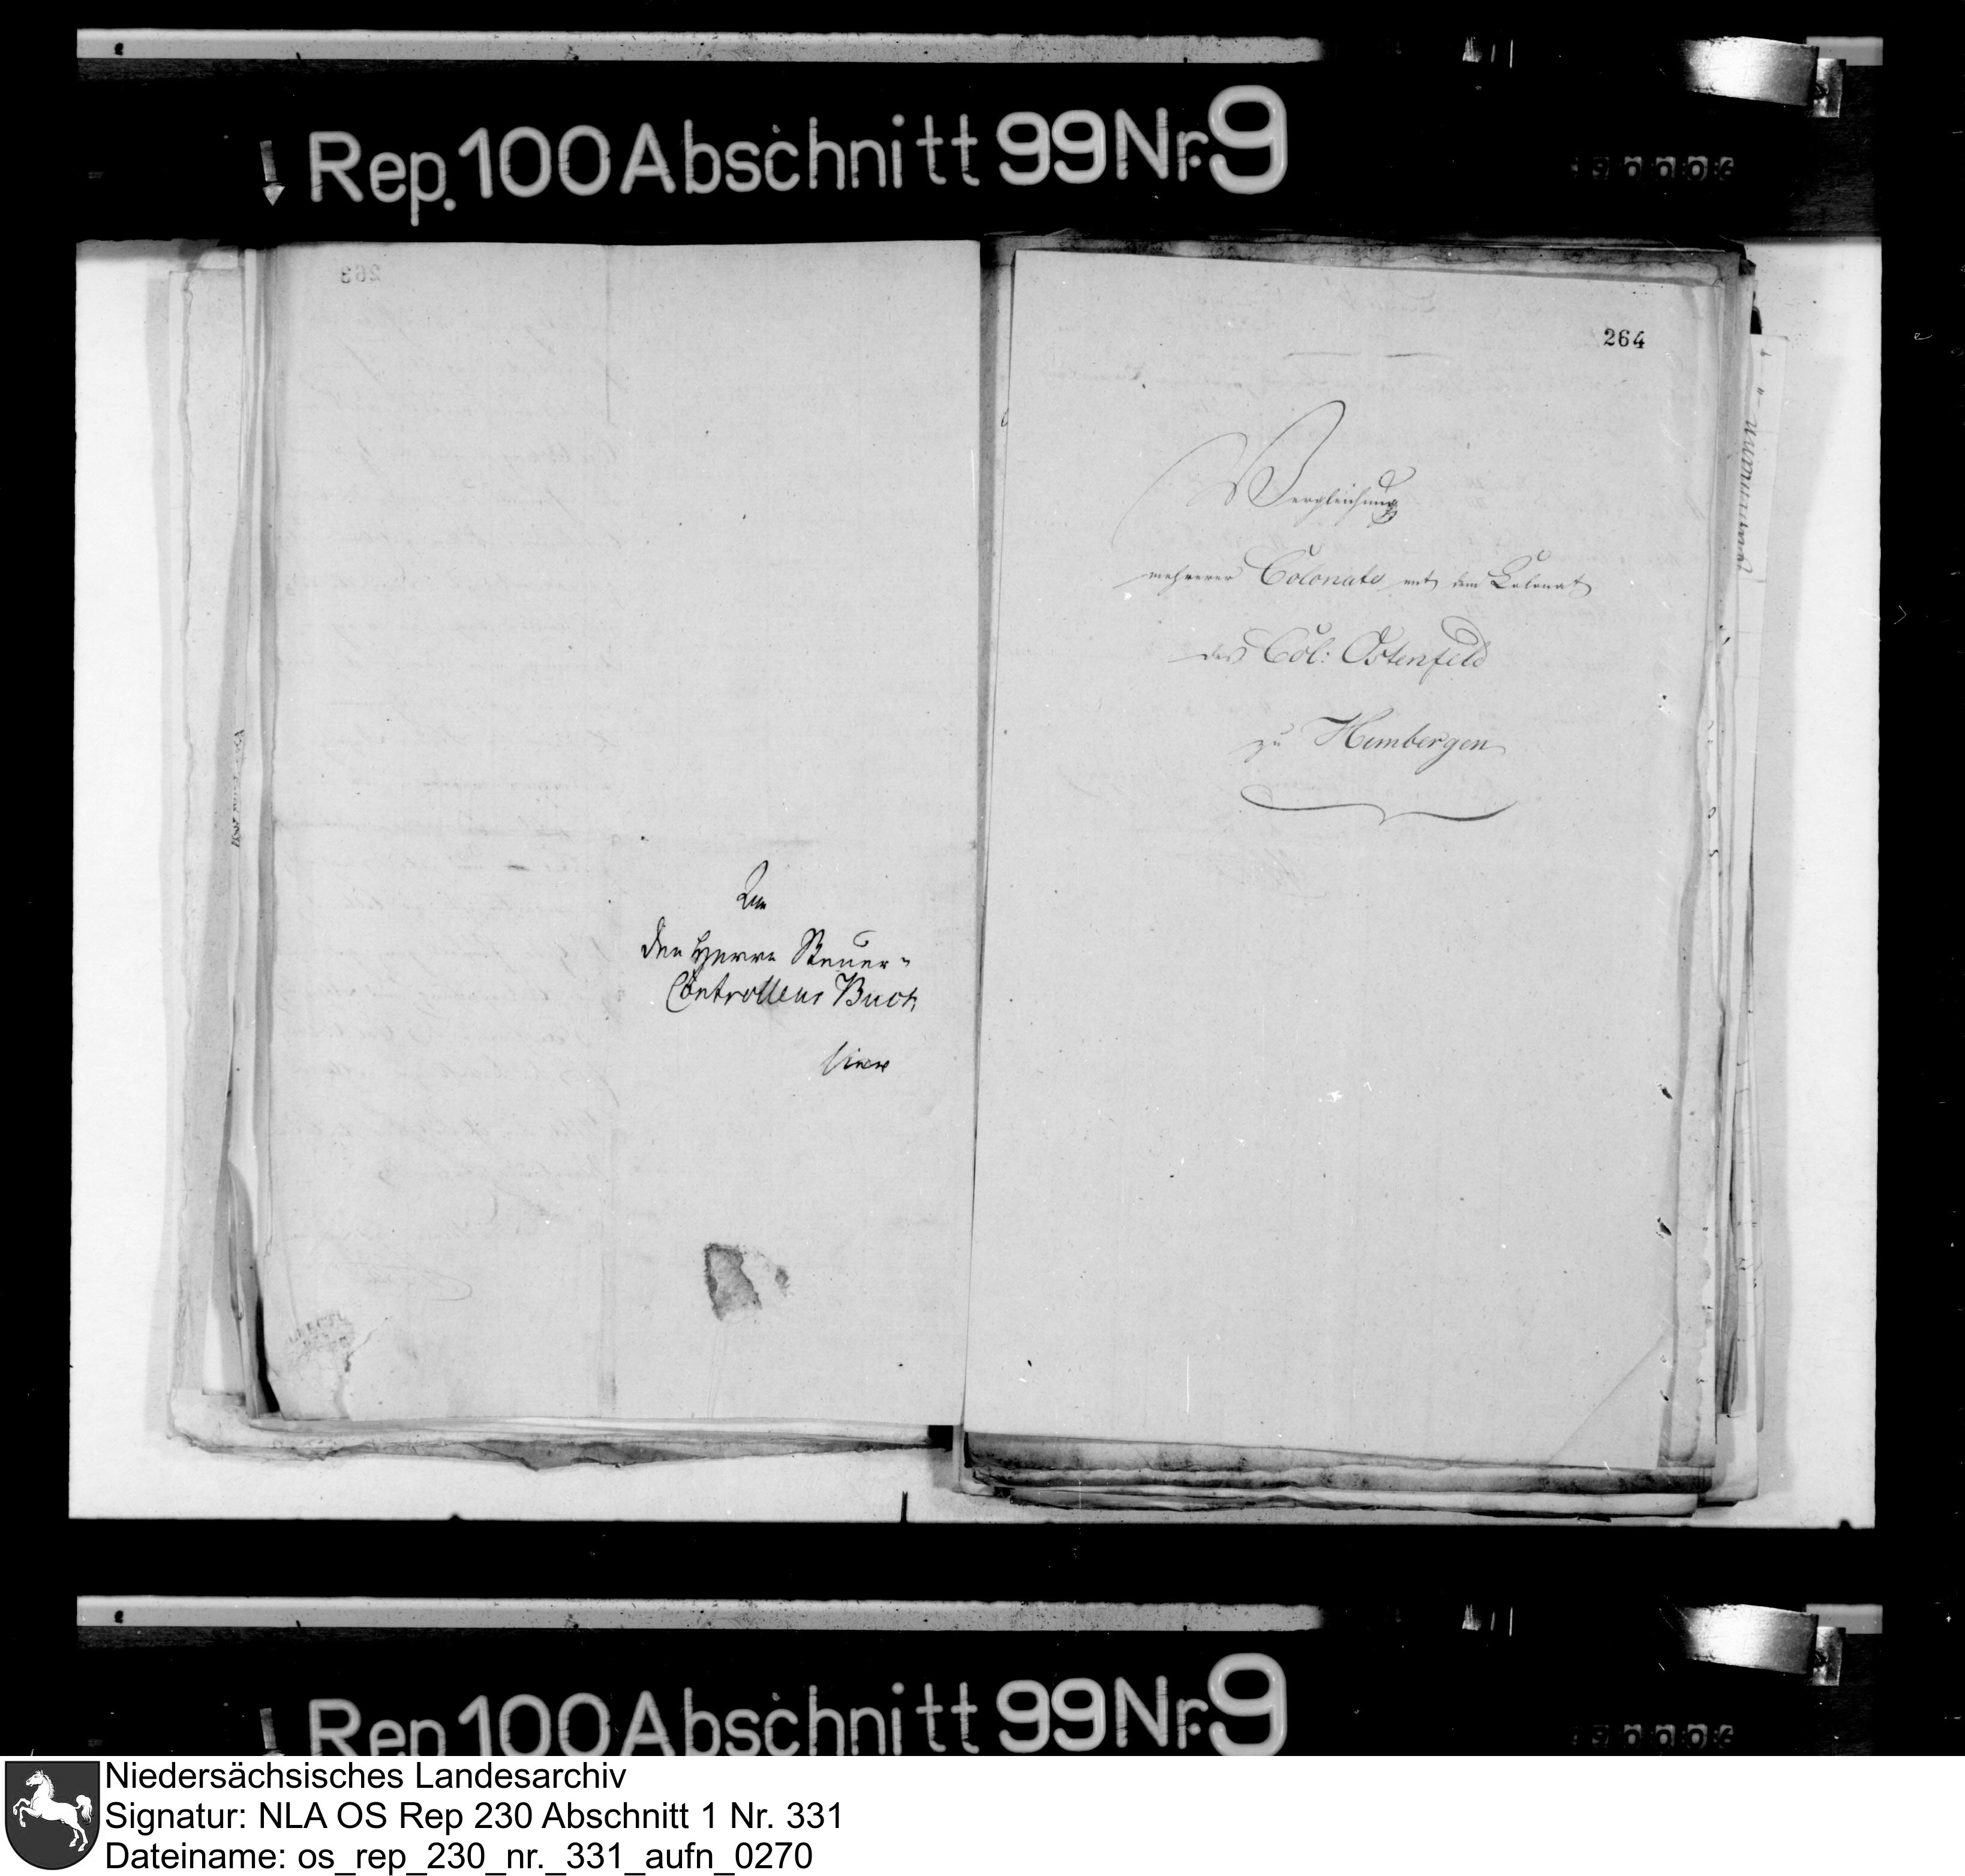 Rep. 100 Abschnitt 99 Nr. 9
263
An
den Herrn Steuer-
Controlleur Buch
hier
264
Vergleichung
mehrerer Colonate mit dem Colonat
des Col: Ostenfeld
zu Hembergen
Rep 100 Abschnitt 99 Nr. 9
Niedersächsisches Landesarchiv
Signatur: NLA OS Rep 230 Abschnitt 1 Nr. 331
Dateiname: os_rep_230_nr._331_aufn_0270